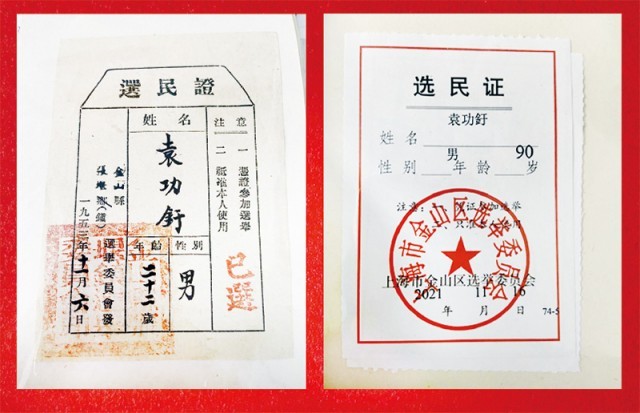 選民證
注意
一 憑證參加選舉
二 祇准本人使用
已選
姓名
袁功釪
性別
男
年齡
二十二歲
金山縣
張堰區(鎮)
選舉委員會發
一九五三年十一月六日
选民证
袁功釪
姓名
男 90
性别 年龄 岁
注意:
上海市金山区选举委员会
上海市金山区选举委员会
2021 11 16
年 月 日
74-5